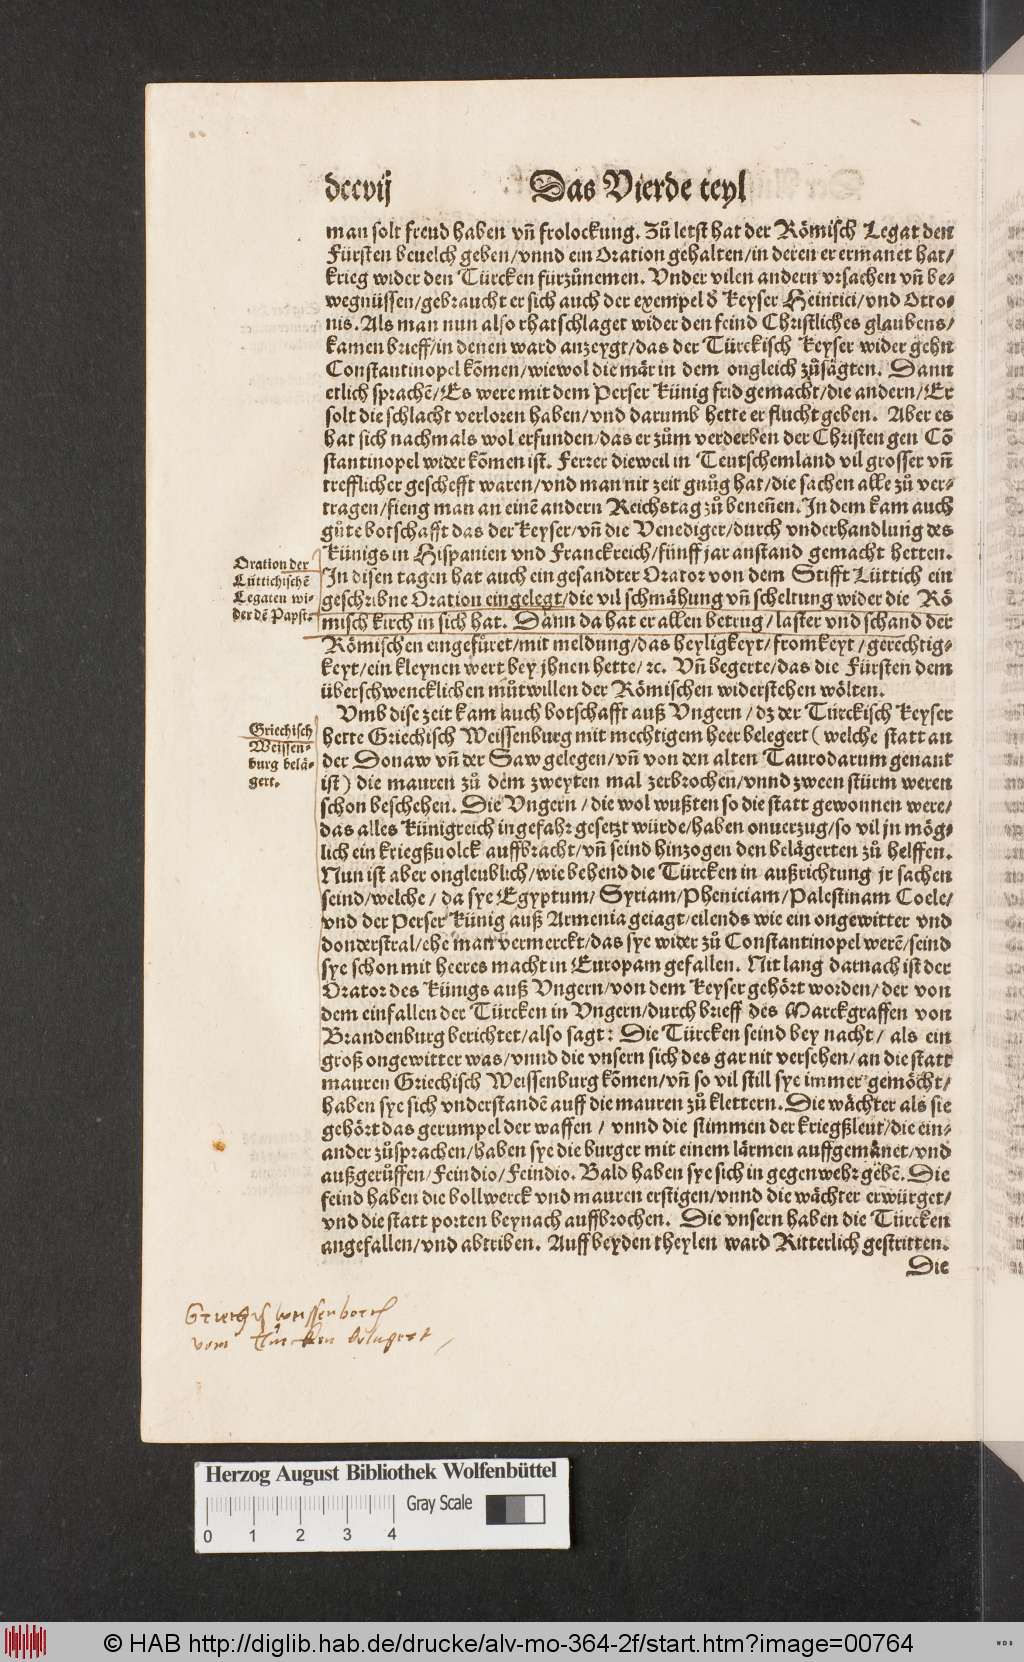 dccvij Das Vierde teyl
man solt freud haben vñ frolockung. Zů letst hat der Römisch Legat den
Fürsten beuelch geben/vnnd ein Oration gehalten/in deren er ermanet hat/
krieg wider den Türcken fürzůnemen. Vnder vilen andern vrsachen vñ be-
wegnüssen/gebraucht er sich auch der exempel d̕ Keyser Heinrici/vnd Otto-
nis. Als man nun also rhatschlaget wider den feind Christliches glaubens/
kamen brieff/in denen ward anzeygt/das der Türckisch Keyser wider gehn
Constantinopel kõmen/wiewol die mär in dem ongleich zůsagten. Dann
etlich sprachẽ/Es were mit dem Perser Künig frid gemacht/die andern/Er
solt die schlacht verloren haben/vnd darumb hette er flucht geben. Aber es
hat sich nachmals wol erfunden/das er zům verderben der Christen gen Cõ
stantinopel wider kõmen ist. Ferrer dieweil in Teutschemland vil grosser vñ
trefflicher geschefft waren/vnd man nit zeit gnůg hat/die sachen alle zů ver-
tragen/fieng man an einẽ andern Reichstag zů beneñen. In dem kam auch
gůte botschafft das der Keyser/vñ die Venediger/durch vnderhandlung des
Künigs in Hispanien vnd Franckreich/fünff jar anstand gemacht hetten.
Oration der
Lüttichischẽ
Legaten wi-
der dẽ Papst.
In disen tagen hat auch ein gesandter Orator von dem Stifft Lüttich ein
geschribne Oration eingelegt/die vil schmähung vñ scheltung wider die Rö
misch kirch in sich hat. Dann da hat er allen betrug/laster vnd schand der
Römischen eingefůret/mit meldung/das heyligkeyt/fromkeyt/gerechtig-
keyt/ein kleynen wert bey jhnen hette/ꝛc. Vñ begerte/das die Fürsten dem
überschwencklichen můtwillen der Römischen widerstehen wölten.
Griechisch
Weissen-
burg belä-
gert.
Vmb dise zeit kam auch botschafft auß Vngern/dz der Türckisch Keyser
hette Griechisch Weissenburg mit mechtigem heer belegert (welche statt an
der Donaw vñ der Saw gelegen/vñ von den alten Taurodarum genant
ist) die mauren zů dem zweyten mal zerbrochen/vnnd zween stürm weren
schon beschehen. Die Vngern/die wol wußten so die statt gewonnen were/
das alles Künigreich in gefahr gesetzt würde/haben onuerzug/so vil jn mög-
lich ein kriegßuolck auffbracht/vñ seind hinzogen den belägerten zů helffen.
Nun ist aber ongleublich/wie behend die Türcken in außrichtung jr sachen
seind/welche/da sye Egyptum/Syriam/Pheniciam/Palestinam Coele/
vnd der Perser Künig auß Armenia geiagt/eilends wie ein ongewitter vnd
donderstral/ehe man vermerckt/das sye wider zů Constantinopel werẽ/seind
sye schon mit heeres macht in Europam gefallen. Nit lang darnach ist der
Orator des Künigs auß Vngern/von dem Keyser gehört worden/der von
dem einfallen der Türcken in Vngern/durch brieff des Marckgraffen von
Brandenburg berichtet/also sagt: Die Türcken seind bey nacht/als ein
groß ongewitter was/vnnd die vnsern sich des gar nit versehen/an die statt
mauren Griechisch Weissenburg kõmen/vñ so vil still sye immer gemöcht/
haben sye sich vnderstandẽ auff die mauren zů klettern. Die wächter als sie
gehört das gerumpel der waffen/vnnd die stimmen der kriegßleut/die ein-
ander zůsprachen/haben sye die burger mit einem lärmen auffgemänet/vnd
außgerůffen/Feindio/Feindio. Bald haben sye sich in gegenwehr gebẽ. Die
feind haben die bollwerck vnd mauren erstigen/vnnd die wächter erwürget/
vnd die statt porten beynach auffbrochen. Die vnsern haben die Türcken
angefallen/vnd abtriben. Auff beyden theylen ward Ritterlich gestritten.
Die
vom Türcken belagert
Herzog August Bibliothek Wolfenbüttel
Gray Scale
0 1 2 3 4
© HAB http://diglib.hab.de/drucke/alv-mo-364-2f/start.htm?image=00764